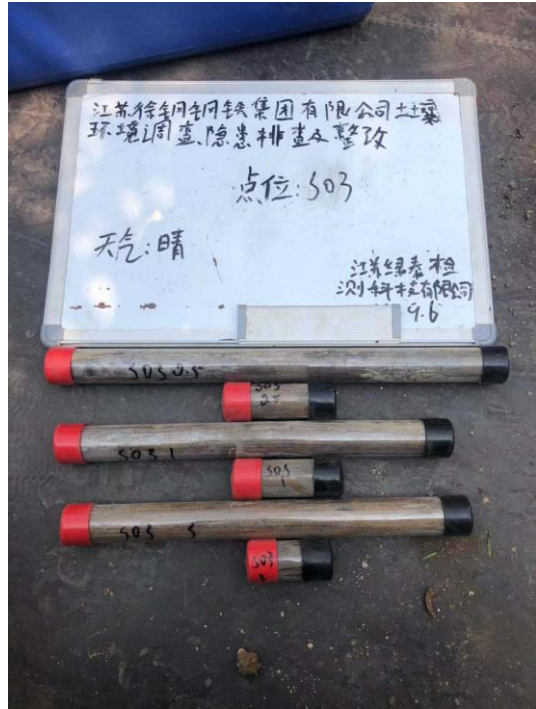 江苏徐钢钢铁集团有限公司土壤
环境调查、隐患排查及整改
点位:S03
天气:晴
江苏绿泰检
测科技有限公司
9.6
S03 0.5
S03
S03 1
S03
1
S03 3
S03